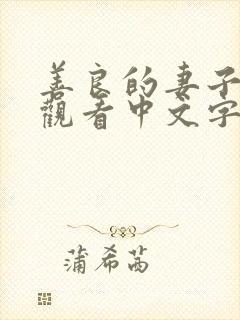 善良的妻子
觀看中文字
蒲希茜